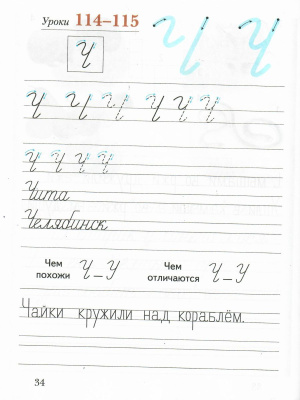 Уроки 114–115
Ч Ч
Ч
Ч Ч Ч Ч Ч Ч
Ч Ч Ч Ч
Чита
Челябинск
Чем похожи Ч – У Чем отличаются Ч – У
Чайки кружили над кораблём.
34